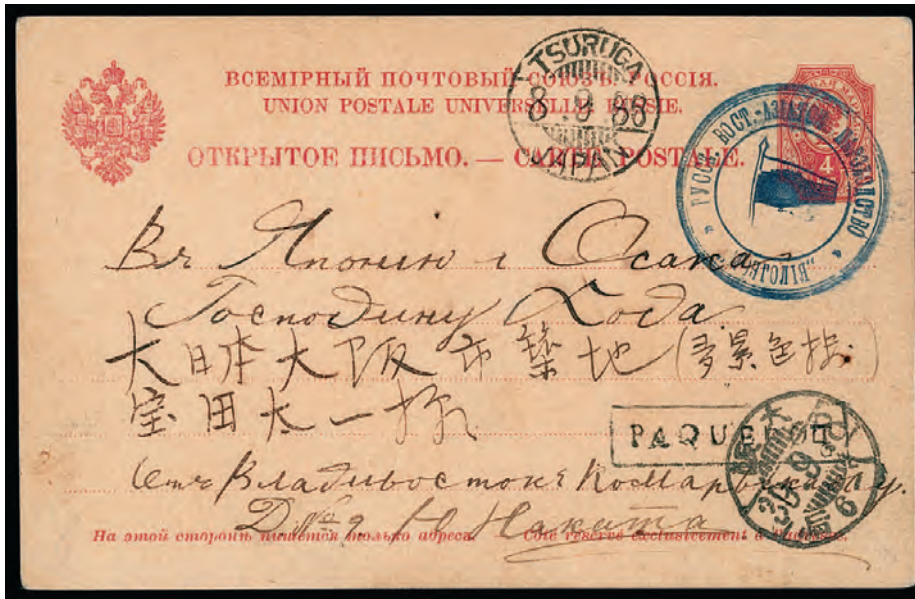 ВСЕМІРНЫЙ ПОЧТОВЫЙ СОЮЗЪ. РОССІЯ.
UNION POSTALE UNIVERSELLE. RUSSIE.
ОТКРЫТОЕ ПИСЬМО. — CARTE POSTALE.
TSURUGA
8 . 9
JAPAN
4
РУССК. ВОСТ.-АЗІАТСК. ПАРОХОДСТВО
Въ Японію г Осака
Господину
大日本大阪市築地
宝田太一
PAQUEBOT
Отъ Владивостокъ
Д № 2 Н Наката
На этой сторонѣ пишется только адресъ. — Côté réservé exclusivement à l'adresse.